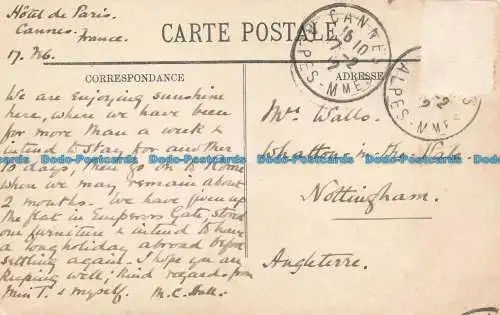 Hôtel de Paris.
Cannes.
France.
17. Feb.
CARTE POSTALE
CORRESPONDANCE
ADRESSE
We are enjoying sunshine
here, where we have been
for more than a week &
intend to stay for another
10 days, then go on to Rome
where we may remain about
2 months. We have given up
the flat in Emperors Gate, stored
our furniture & intend to have
a long holiday abroad before
settling again. I hope you are
keeping well; Kind regards from
Min T. & myself. M. C. Hall.
Mrs Walls.
Whatton-in-the-Vale
Nottingham.
Angleterre.
CANNES
16 10
7-2
ALPES-MMES
ALPES-MMES
Dodo-Postcards Dodo-Postcards Dodo-Postcards Dodo-Postcards Dodo-Postcards Dodo-Postcards